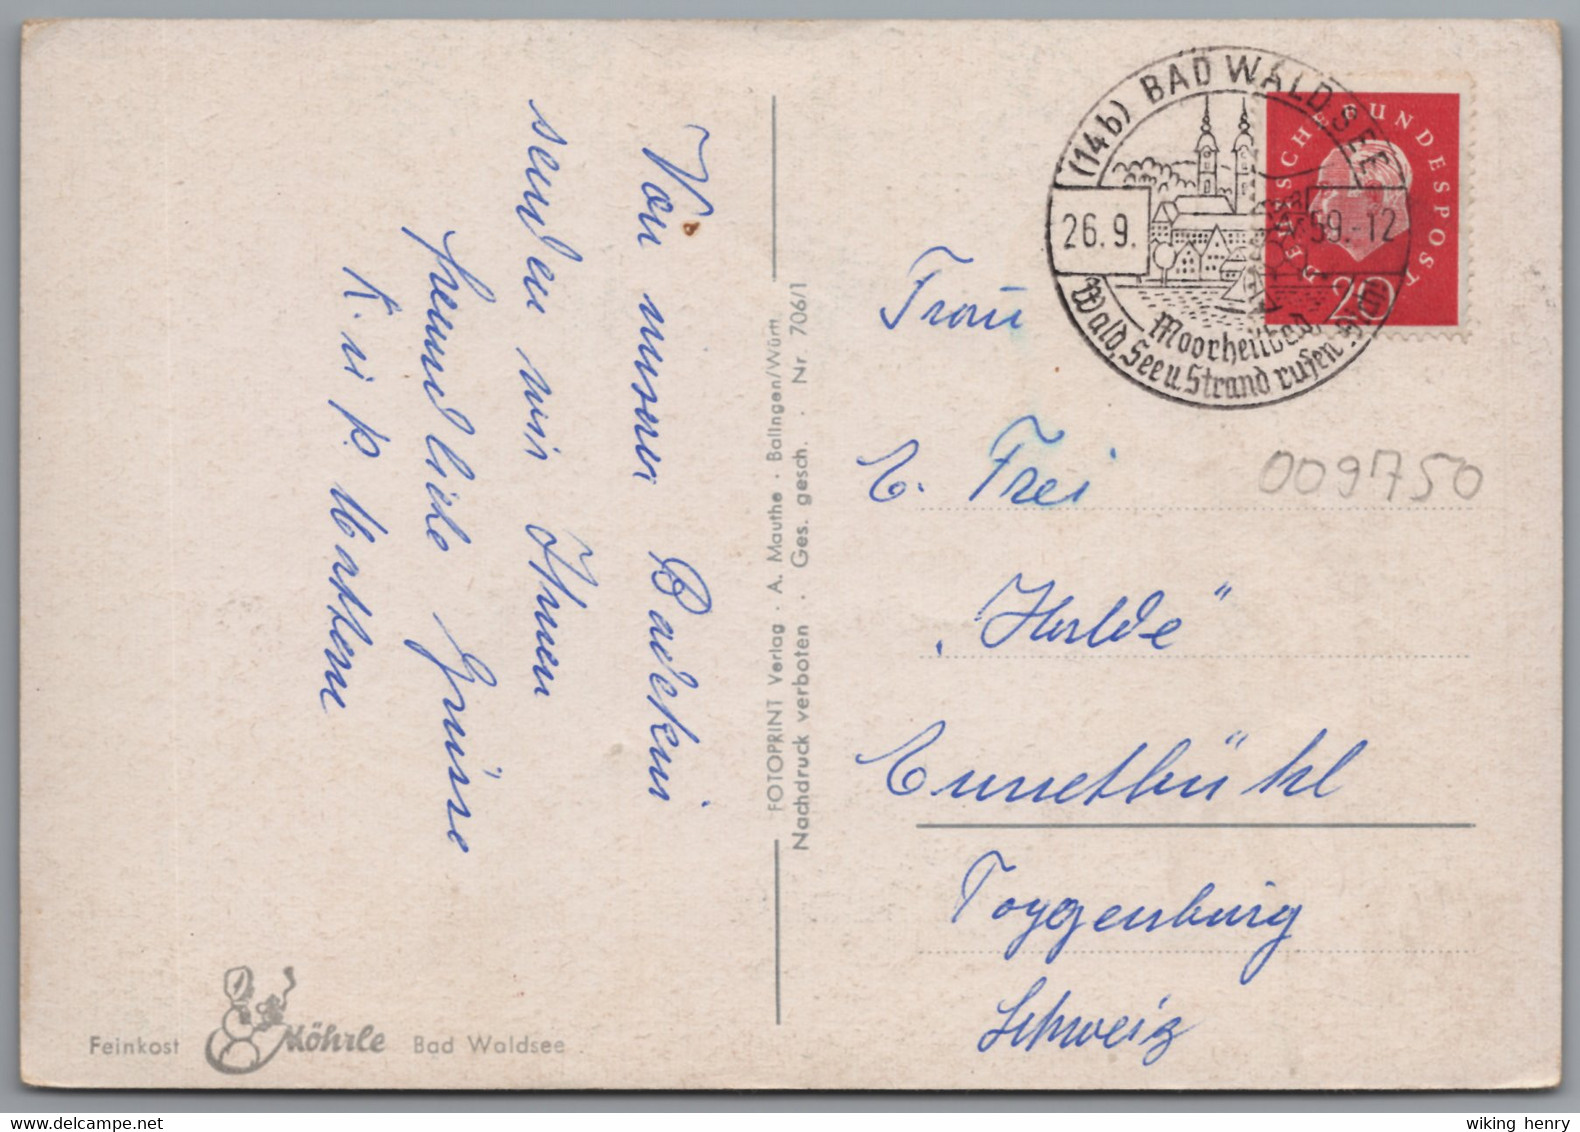 Von unserer Badekur
senden wir Ihnen
freundliche Grüsse
FOTOPRINT Verlag · A. Mauthe · Balingen/Württ.
Nachdruck verboten · Ges. gesch. · Nr. 706/1
(14b) BAD WALDSEE
26. 9. 59.-12
Moorheilbad
Wald, See u. Strand rufen
DEUTSCHE BUNDESPOST
20
009750
Frau
E. Frei
„Halde"
Bunetbühl
Toggenburg
Schweiz
Feinkost Möhrle Bad Waldsee
wiking henry